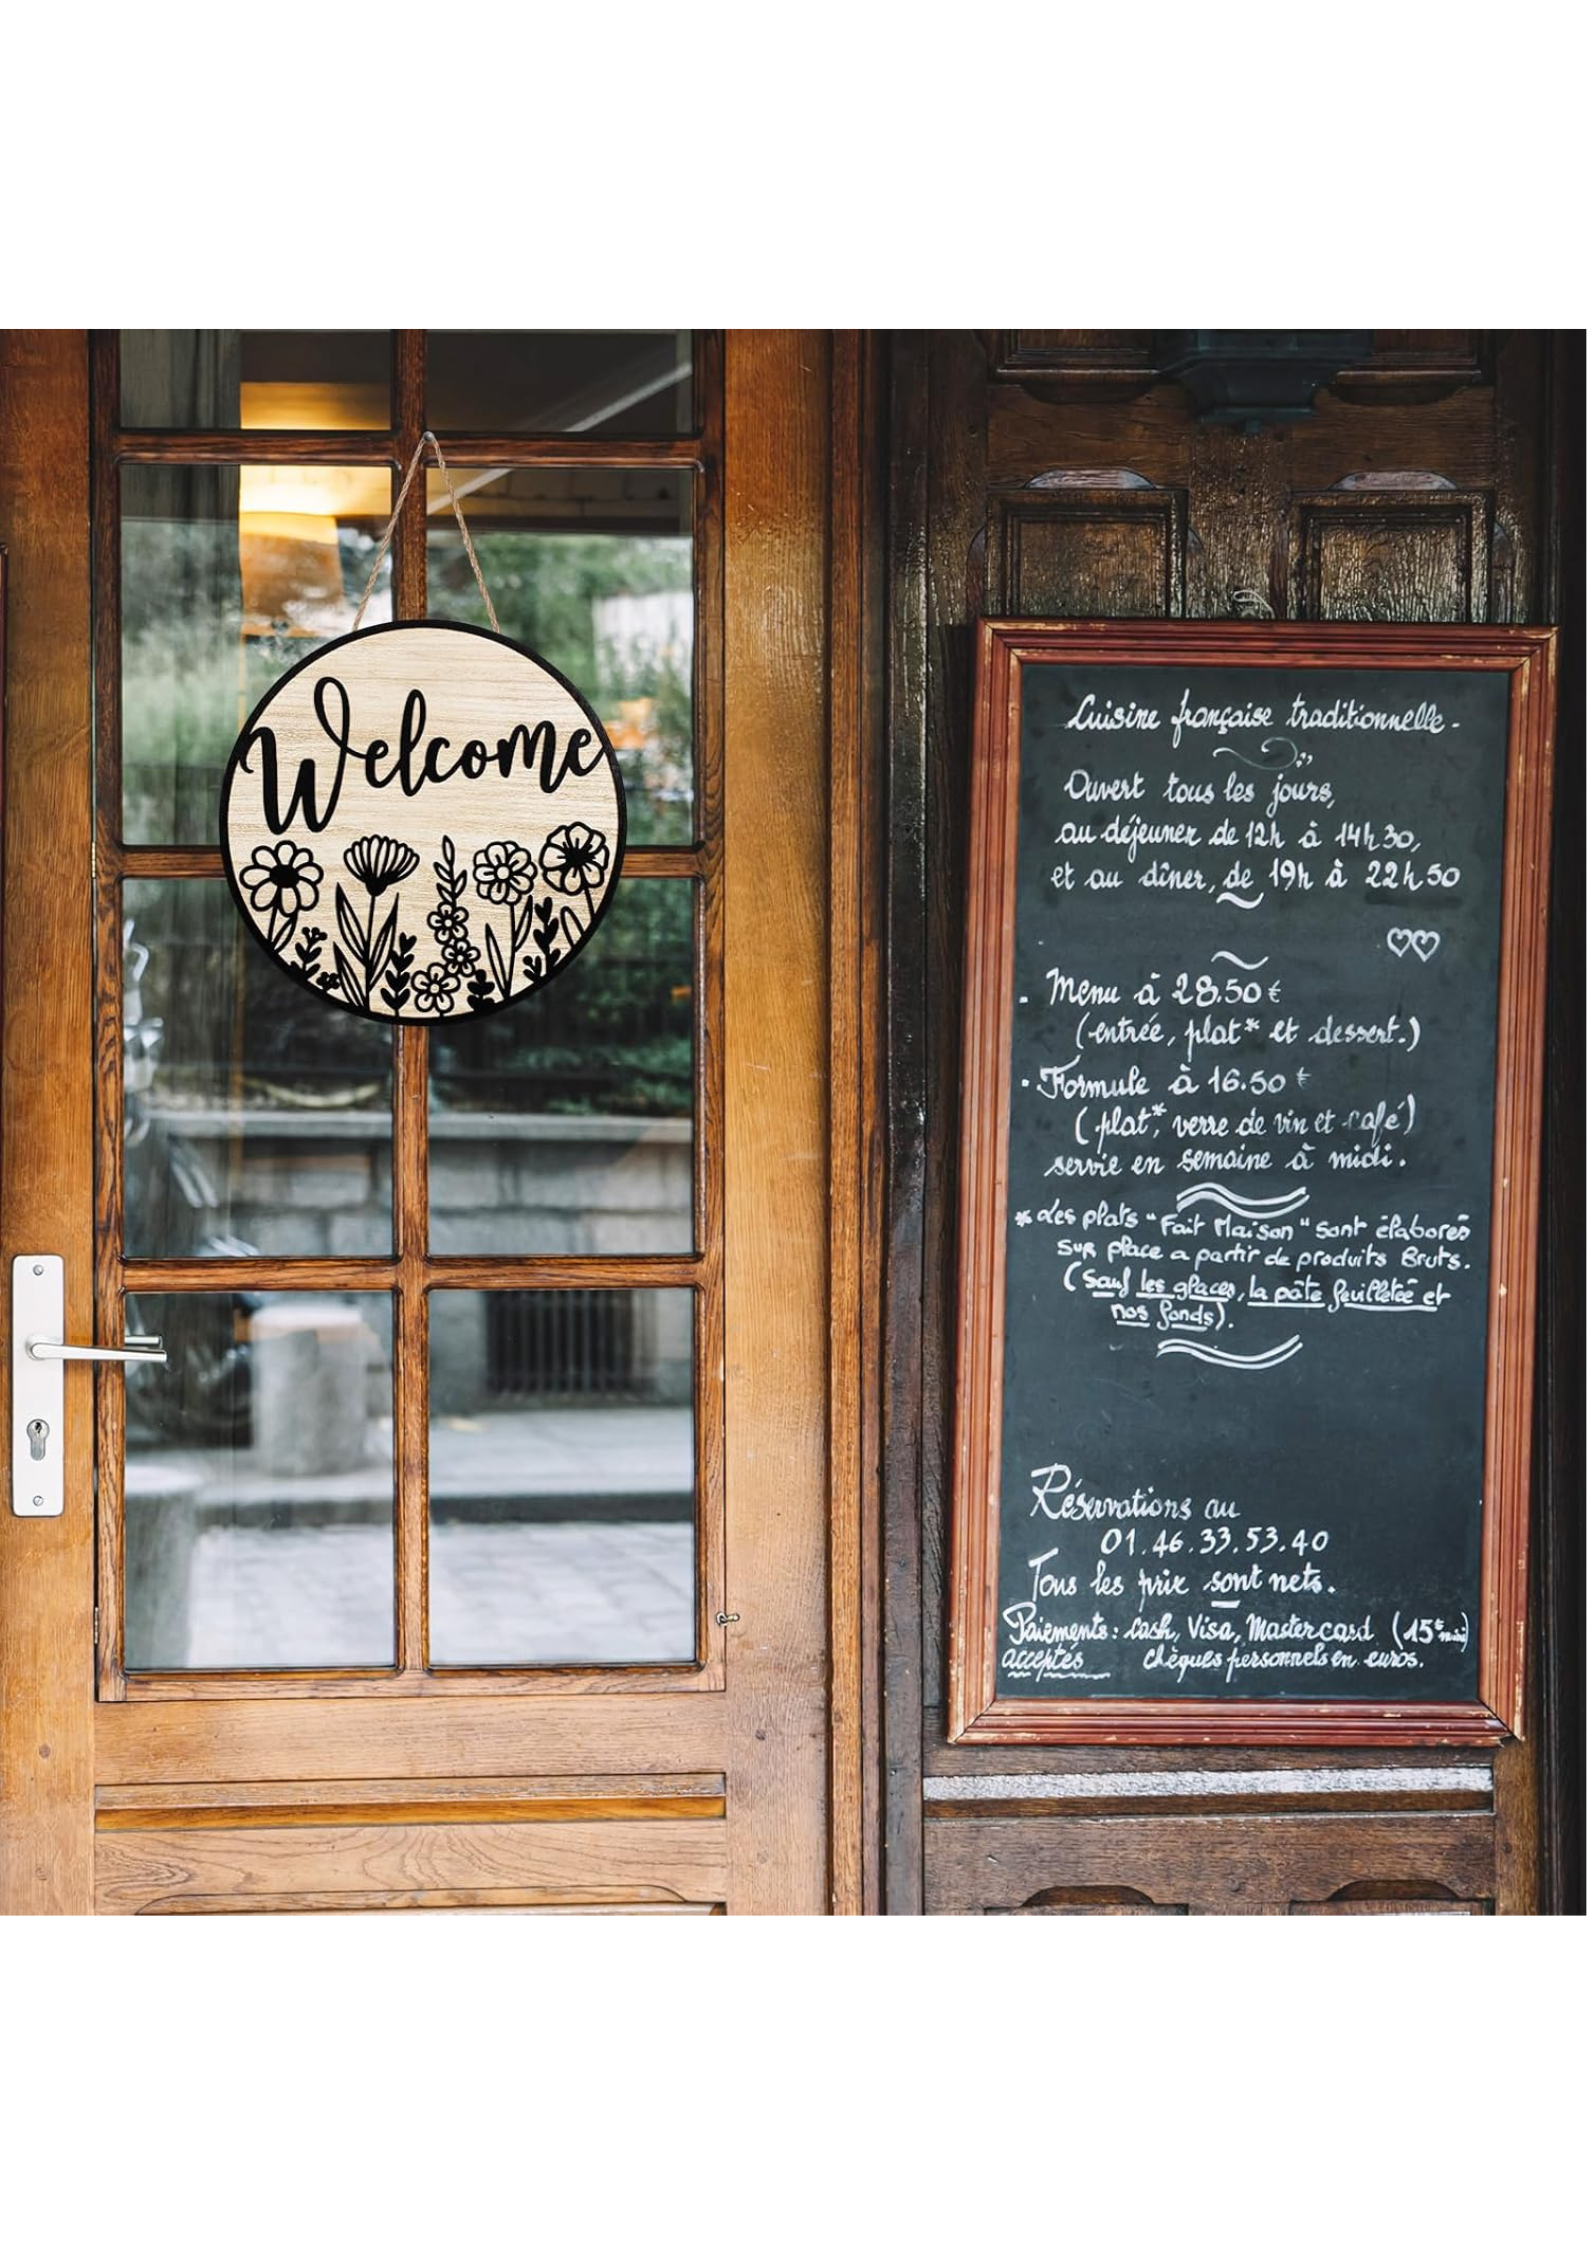 Welcome
Cuisine française traditionnelle -
Ouvert tous les jours,
au déjeuner de 12h à 14h30,
et au dîner, de 19h à 22h50
- Menu à 28.50 €
(entrée, plat* et dessert.)
- Formule à 16.50 €
(plat*, verre de vin et café)
servie en semaine à midi.
* Les plats "Fait Maison" sont élaborés
sur place a partir de produits Bruts.
(Sauf les glaces, la pâte feuilletée et
nos fonds).
Réservations au
01.46.33.53.40
Tous les prix sont nets.
Paiements : Cash, Visa, Mastercard (15€ mini)
acceptés chèques personnels en euros.